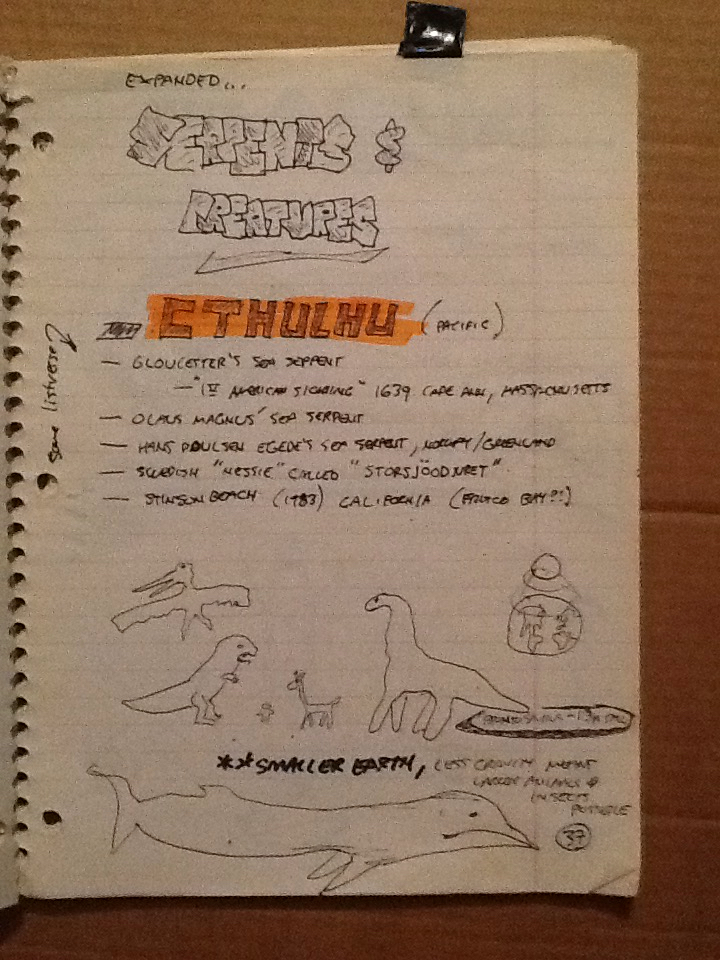 EXPANDED...
SERPENTS &
CREATURES
CTHULHU (PACIFIC)
some listverse?
— GLOUCESTER'S SEA SERPENT
— "1ST AMERICAN SIGHING" 1639 CAPE ANN, MASSACHUSETTS
— OLAUS MAGNUS' SEA SERPENT
— HANS POULSEN EGEDE'S SEA SERPENT, NORWAY/GREENLAND
— SWEDISH "NESSIE" CALLED "STORSJÖODJURET"
— STINSON BEACH (1983) CALIFORNIA (BAY?!)
**SMALLER EARTH, LESS GRAVITY MEANT
LARGER ANIMALS &
INSECTS
POSSIBLE
37